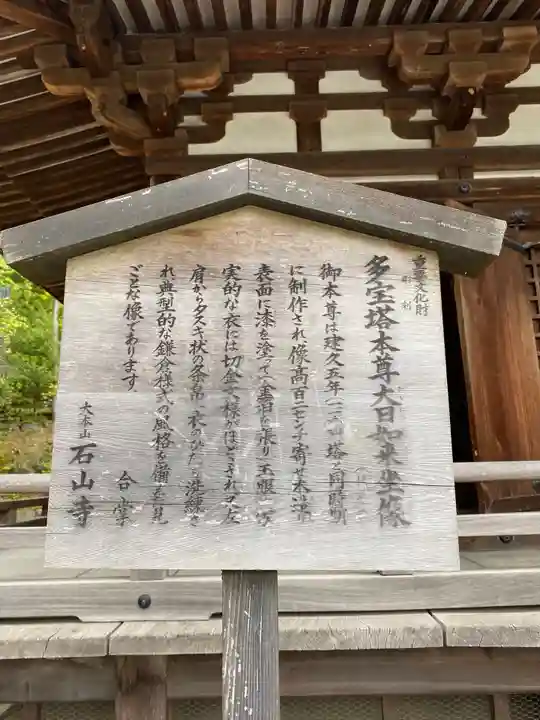 重要文化財
多宝塔本尊大日如来坐像
御本尊は建久五年(一一九四)塔と同時期
に制作され、像高百一センチ寄せ木造
表面に漆を塗って金箔を張り玉眼、写
実的な衣には切金文様がほどこされ又左
肩から夕スキ状の条帛、衣のひだ、洗練さ
れ典型的な鎌倉様式の風格を備えた見
ごとな像であります。
合掌
大本山 石山寺